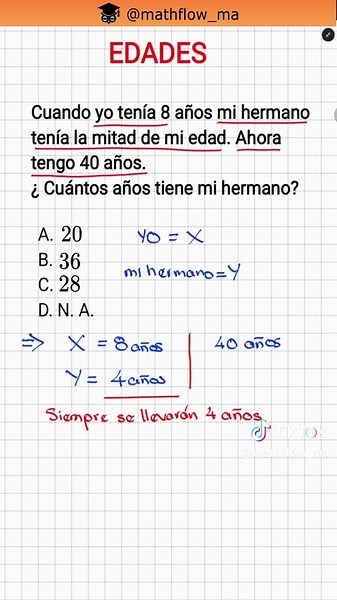 @mathflow_ma
EDADES
Cuando yo tenía 8 años mi hermano
tenía la mitad de mi edad. Ahora
tengo 40 años.
¿ Cuántos años tiene mi hermano?
A. 20
B. 36
C. 28
D. N. A.
YO = X
mi hermano = Y
⇒ X = 8 años | 40 años
Y = 4 años
Siempre se llevarán 4 años